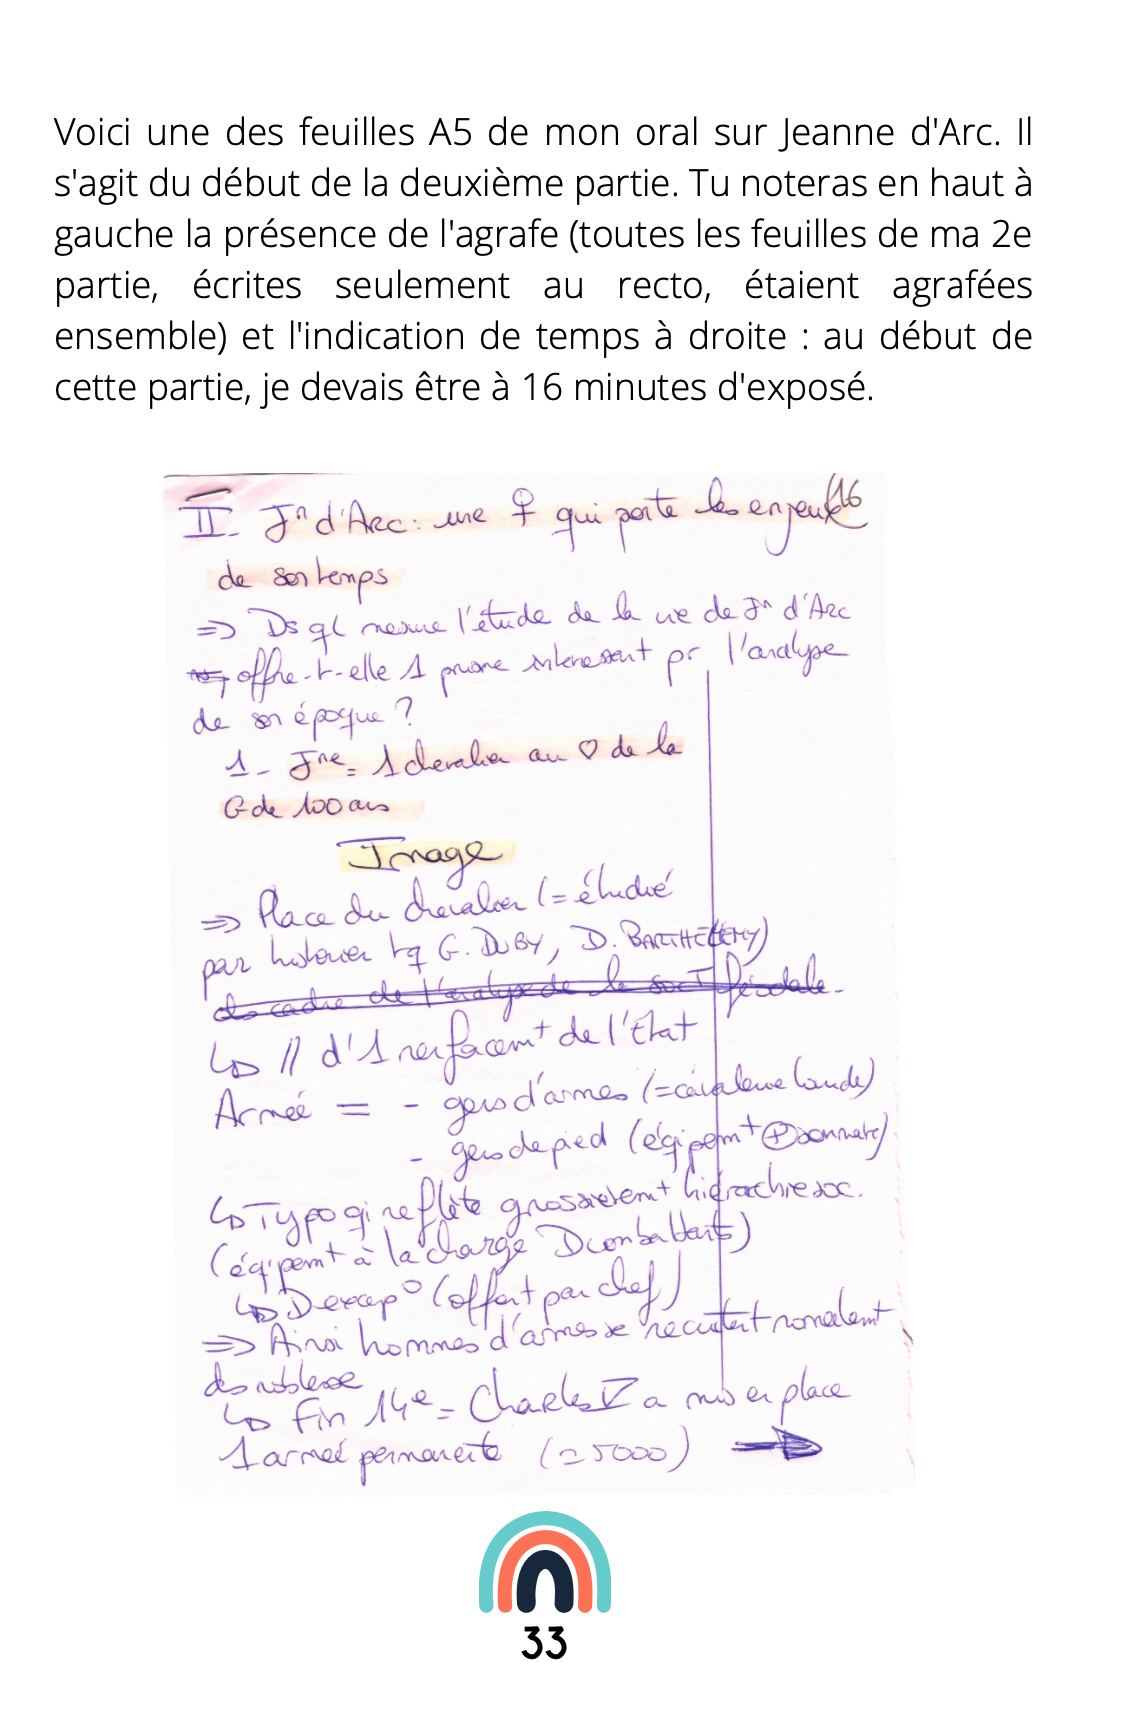 Voici une des feuilles A5 de mon oral sur Jeanne d'Arc. Il
s'agit du début de la deuxième partie. Tu noteras en haut à
gauche la présence de l'agrafe (toutes les feuilles de ma 2e
partie, écrites seulement au recto, étaient agrafées
ensemble) et l'indication de temps à droite : au début de
cette partie, je devais être à 16 minutes d'exposé.
II- Jⁿ d'Arc : une ♀ qui porte les enjeux 16
de son temps
⇒ Ds ql mesure l'étude de la vie de Jⁿ d'Arc
offre-t-elle 1 prisme intéressant pr l'analyse
de son époque ?
1- Jne = 1 chevalier au ♡ de la
G de 100 ans
Image
⇒ Place du chevalier (= étudié
par historien tq G. DUBY, D. BARTHELEMY)
ds cadre de l'analyse de la soct féodale
↳ // d'1 renfacemt de l'État
Armée = - gens d'armes (= cavalerie lourde)
- gens de pied (éqipemt ⊕ sommaire)
↳ Typo qi reflète grossièremt hiérarchie soc.
(éqipemt à la charge D combattants)
↳ D excep° (offert par chef)
⇒ Ainsi hommes d'armes se recrutent normalemt
ds noblesse
↳ Fin 14e = Charles V a mis en place
1 armée permanente (≃ 5000) →
33